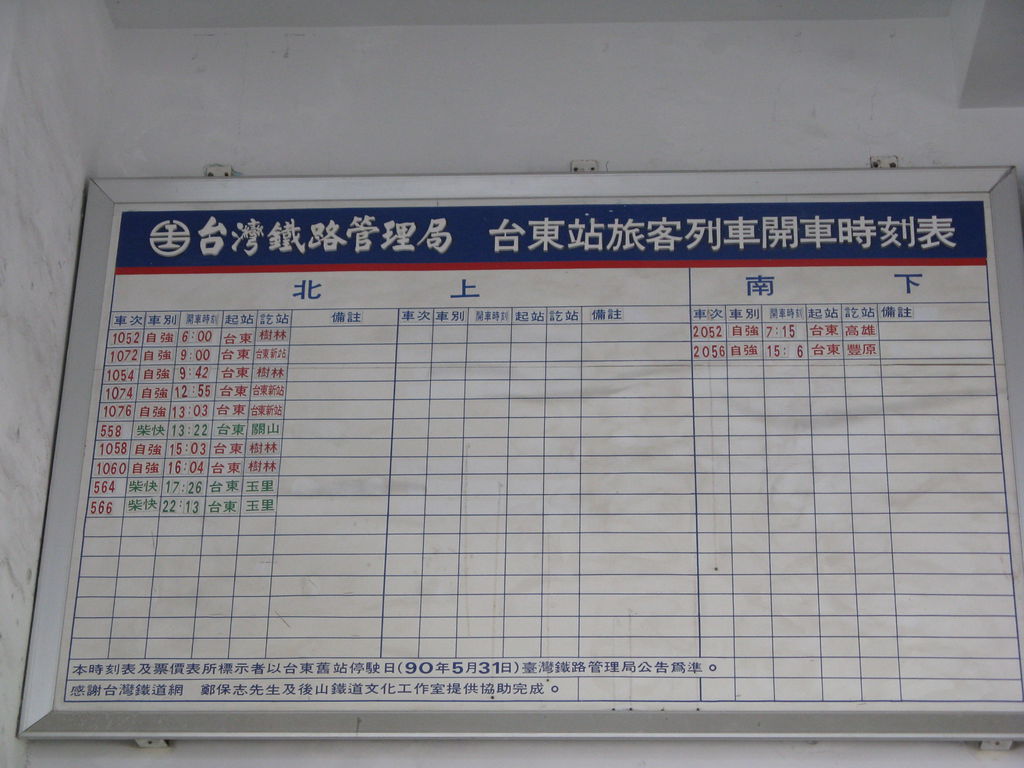 台灣鐵路管理局 台東站旅客列車開車時刻表
北 上 南 下
車次 車別 開車時刻 起站 訖站 備註 車次 車別 開車時刻 起站 訖站 備註 車次 車別 開車時刻 起站 訖站 備註
1052 自強 6:00 台東 樹林 2052 自強 7:15 台東 高雄
1072 自強 9:00 台東 台東新站 2056 自強 15: 6 台東 豐原
1054 自強 9:42 台東 樹林
1074 自強 12:55 台東 台東新站
1076 自強 13:03 台東 台東新站
558 柴快 13:22 台東 關山
1058 自強 15:03 台東 樹林
1060 自強 16:04 台東 樹林
564 柴快 17:26 台東 玉里
566 柴快 22:13 台東 玉里
本時刻表及票價表所標示者以台東舊站停駛日(90年5月31日)臺灣鐵路管理局公告為準。
感謝台灣鐵道網 鄭保志先生及後山鐵道文化工作室提供協助完成。